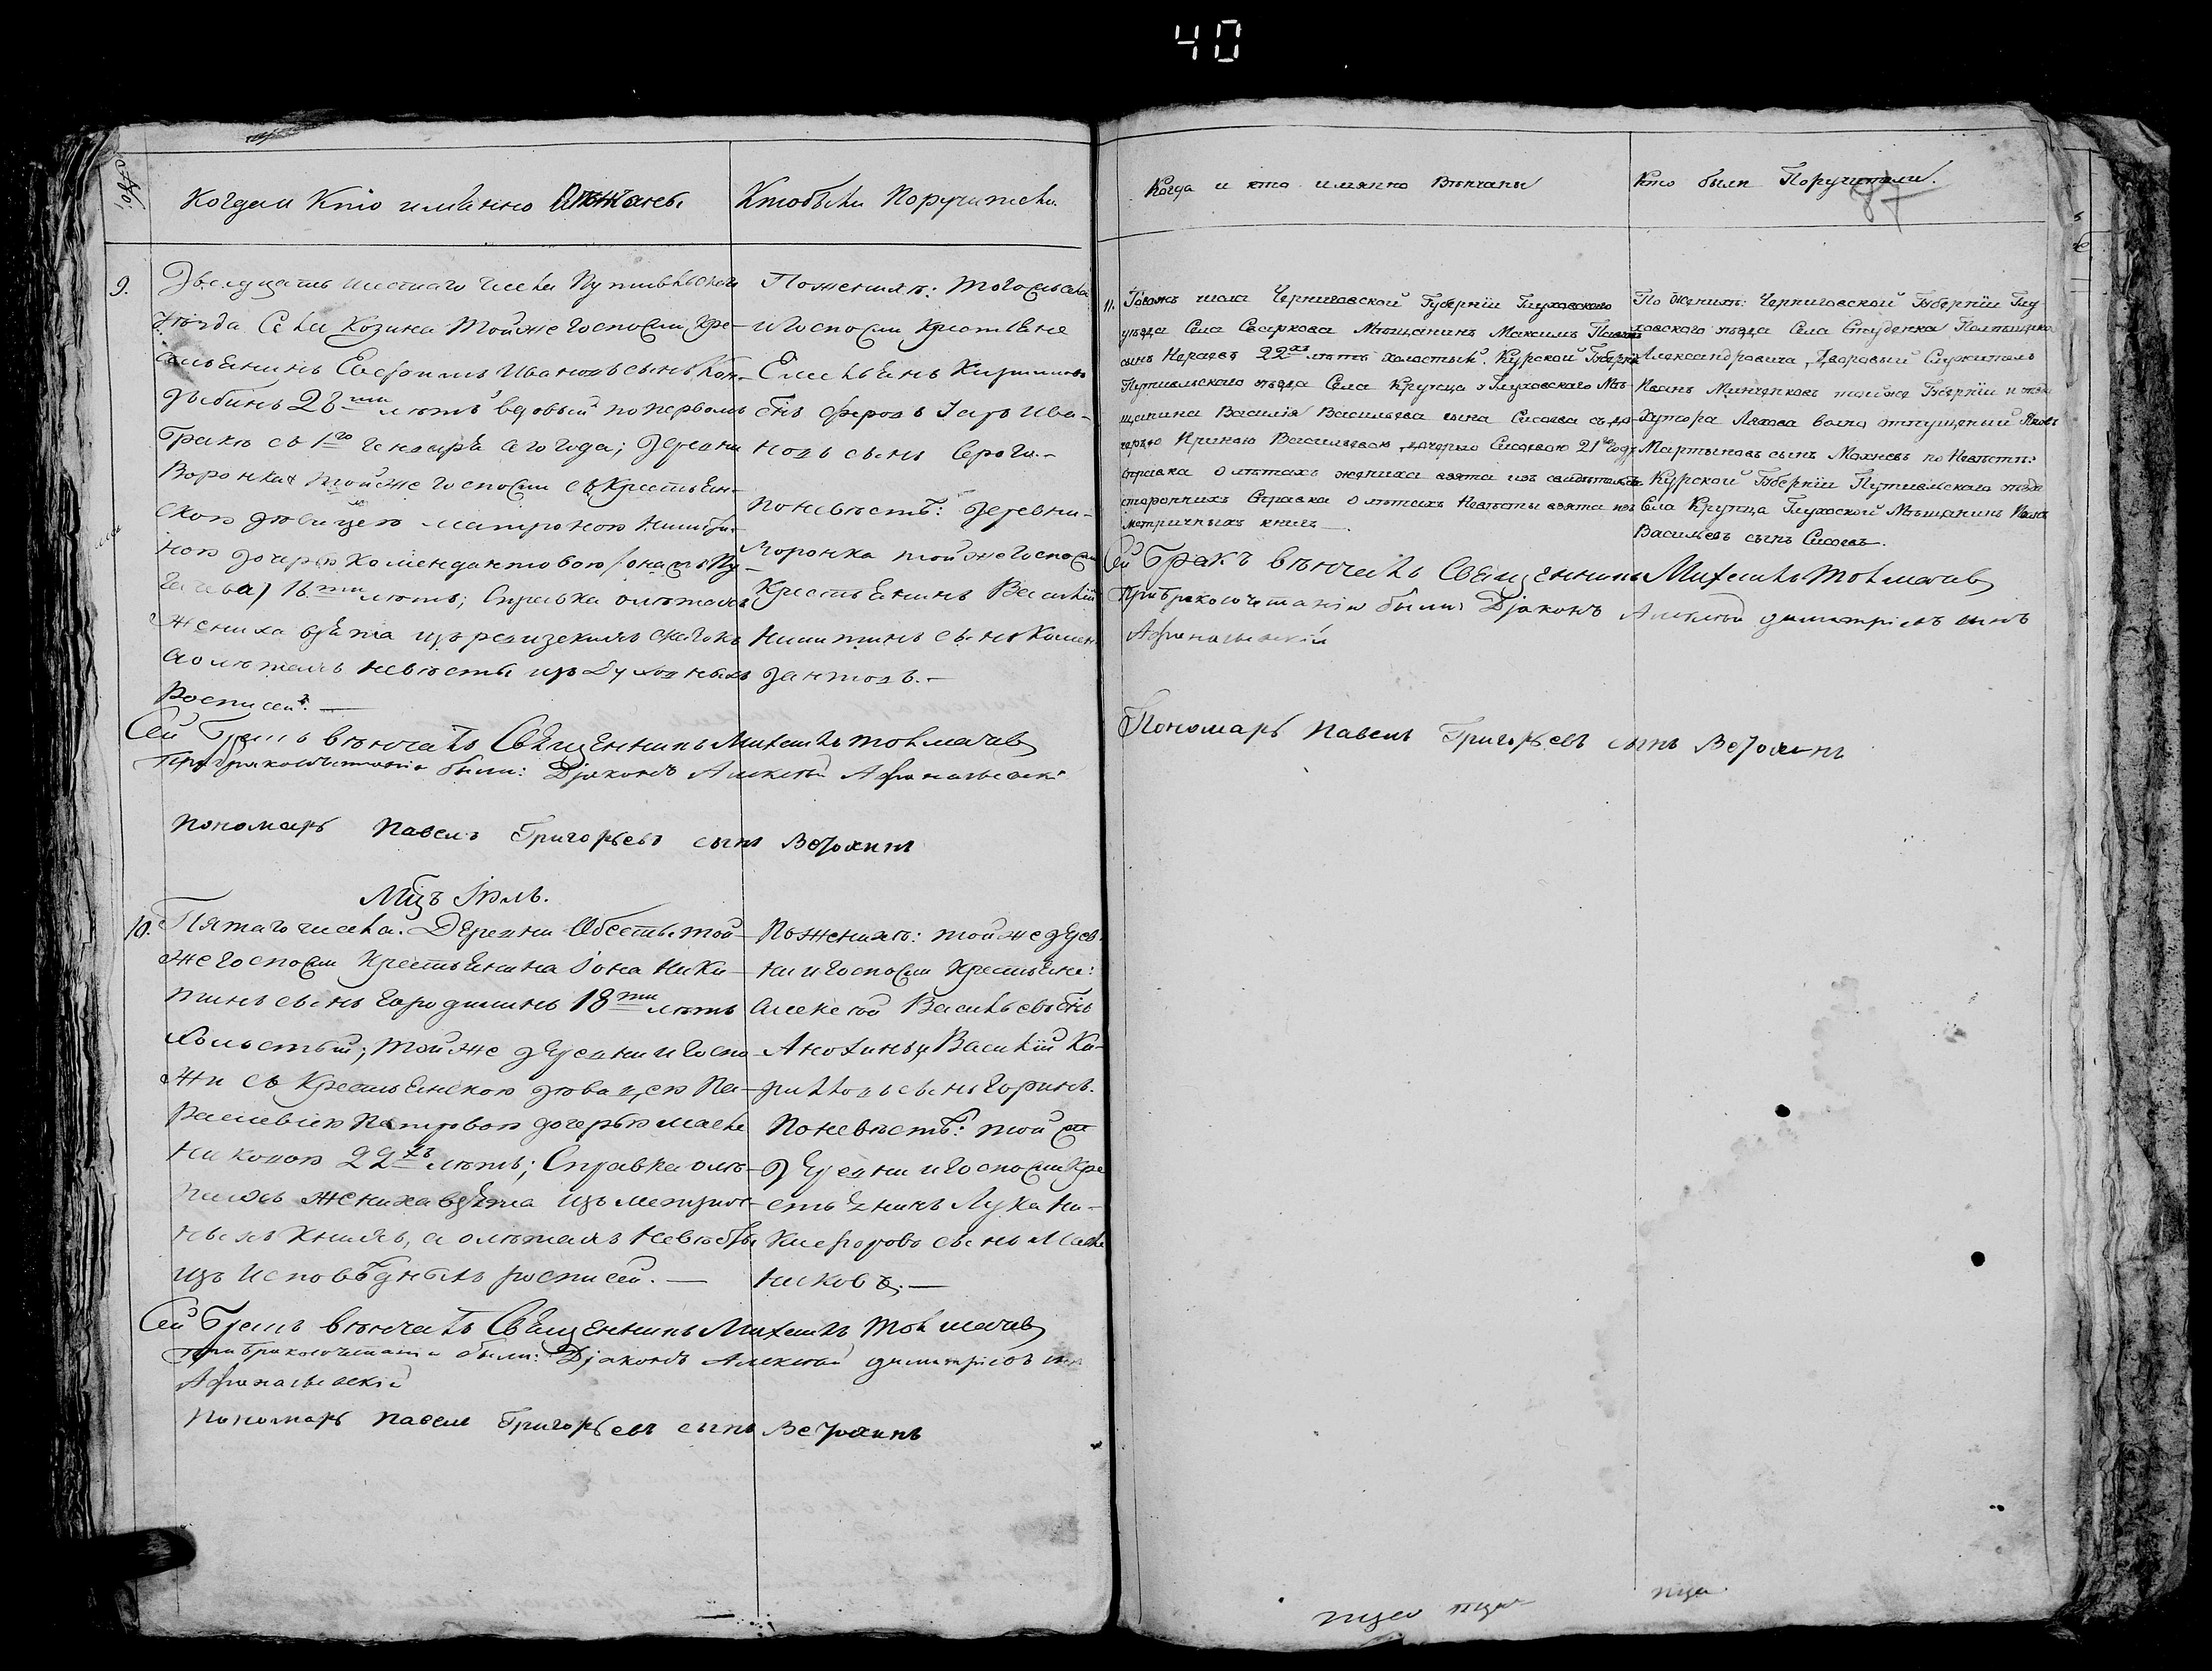 40
Когда и Кто имянно Вѣнчаны
Кто были Поручители
9.
Двадцать шестаго числа Путивльскаго
Уѣзда Села Козина той же Госпожи, Кре-
стьянинъ Евфимъ Ивановъ сынъ
28ми лѣтъ вдовый по первомъ
бракѣ съ 1го Генваря сего года; деревни
Воронка той же госпожи съ Крестьян-
скою дѣвицею Матроною Никити-
ною дочерью Комендантовою
16ти лѣтъ; Справка о лѣтахъ
жениха взята изъ ревизскихъ сказокъ
а о лѣтахъ невѣсты изъ Духовныхъ
Росписей. —
По женихѣ: того села
и Госпожи Крестьяне
Емельянъ
Ива-
новъ сынъ
По невѣстѣ: деревни
Воронка той же Госпожи
Крестьянинъ Василій
Никитинъ сынъ Комен-
дантовъ. —
Сей Бракъ вѣнчалъ Священникъ Михаилъ Толмачевъ
При бракосочетаніи были: Діаконъ Алексѣй Афанасьевскій
Пономарь Павелъ Григорьевъ сынъ Ветохинъ
Мцъ Іюль.
10.
Пятаго числа. Деревни той
же госпожи Крестьянина Іона Ники-
тинъ сынъ Городиминъ 18ти лѣтъ
холостый; той же деревни и Госпо-
жи съ Крестьянскою дѣвицею Па-
расковіею Петровою дочерью
никовою 22хъ лѣтъ; Справка о лѣ-
тахъ жениха взята изъ метрич-
ныхъ Книгъ, а о лѣтахъ Невѣсты
изъ Исповѣдныхъ росписей. —
По женихѣ: той же дерев-
ни и Госпожи Крестьяне:
Алексѣй Васильевъ сынъ
Анохинъ и Василій Ки-
рилловъ сынъ Горинъ.
По невѣстѣ: той же
деревни и Госпожи Кре-
стьянинъ Лука Ни-
кифоровъ сынъ
никовъ. —
Сей Бракъ вѣнчалъ Священникъ Михаилъ Толмачевъ
При бракосочетаніи были: Діаконъ Алексѣй Димитріевъ сынъ
Афанасьевскій
Пономарь Павелъ Григорьевъ сынъ Ветохинъ
Когда и кто имянно Вѣнчаны
Кто были Поручители.
87
11.
Тогожъ числа Черниговской Губерніи Глуховскаго
уѣзда Села Сваркова Мѣщанинъ Максимъ Павловъ
сынъ Нераевъ 22хъ лѣтъ холостый. Курской Губерніи
Путивльскаго уѣзда Села Крупца Глуховскаго Мѣ-
щанина Василія Васильева сына Сысоева съ до-
черью Ириною Васильевою дочерью Сысоевою 21го году
Справка о лѣтахъ жениха взята изъ свидѣтельствъ
стороннихъ Справка о лѣтахъ Невѣсты взята изъ
метричныхъ книгъ —.
По Женихѣ: Черниговской Губерніи Глу-
ховскаго уѣзда Села Студенка Полтырка
Александровича, Дворовый Служитель
Иванъ Минченковъ той же Губерніи и того
Хутора Ляхова вѣчно отпущеный Яковъ
Мартыновъ сынъ Махневъ по Невѣстѣ:
Курской Губерніи Путивльскаго уѣзда
Села Крупца Глуховской Мѣщанинъ
Васильевъ сынъ Сысоевъ.
Сей Бракъ вѣнчалъ Священникъ Михаилъ Толмачевъ
При бракосочетаніи были: Діаконъ Алексѣй Димитріевъ сынъ
Афанасьевскій
Пономарь Павелъ Григорьевъ сынъ Ветохинъ